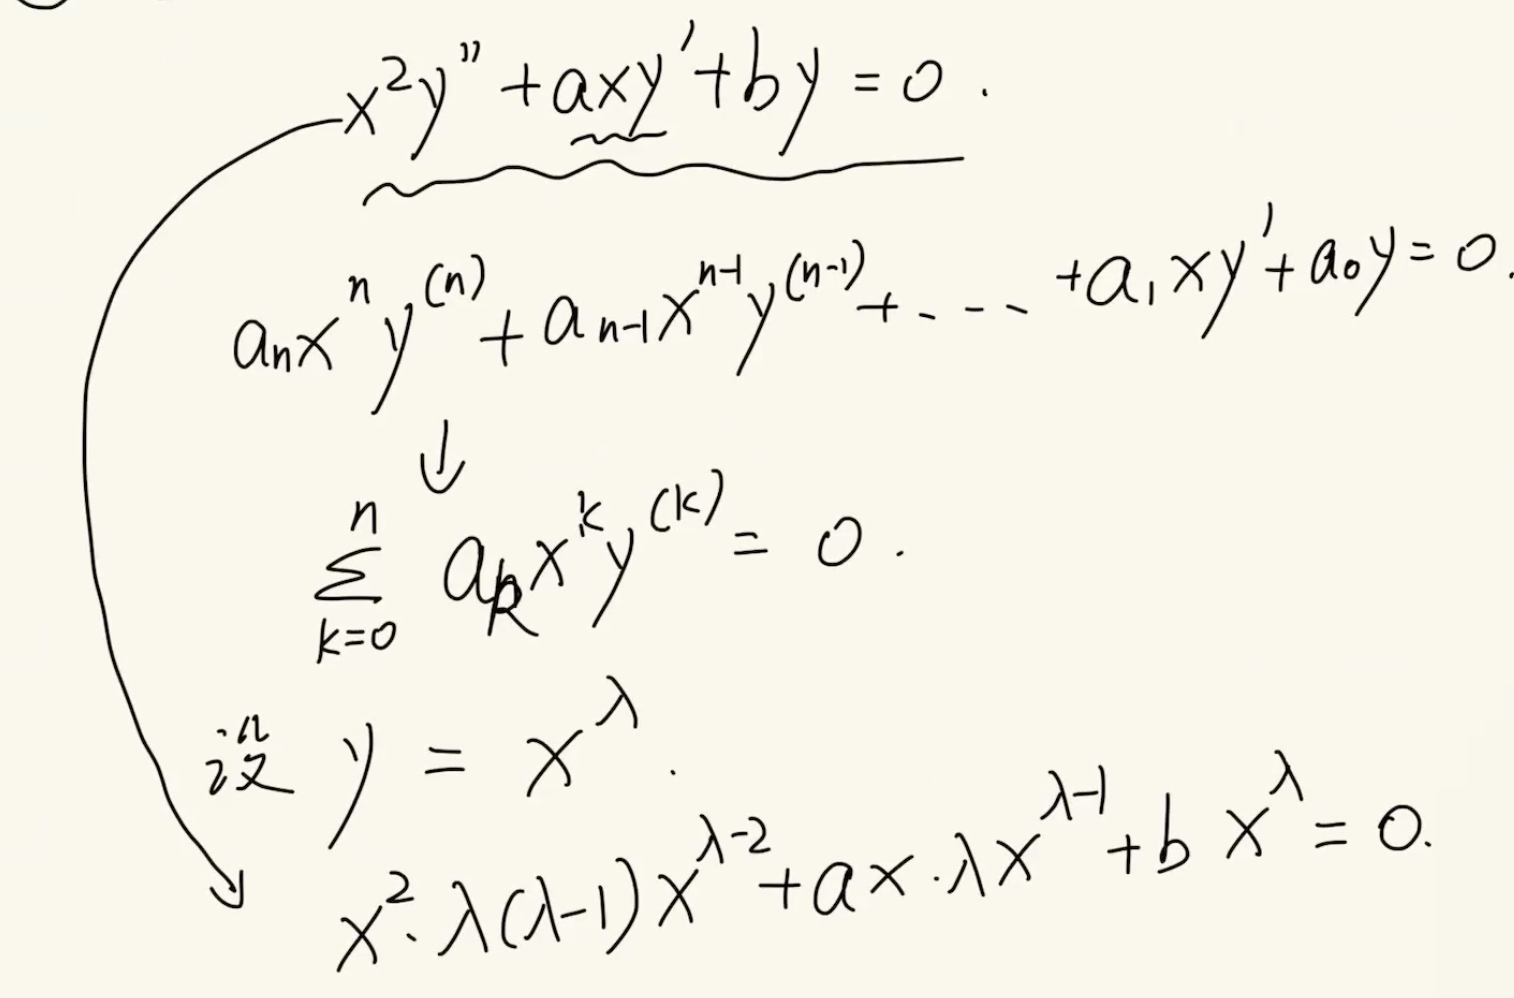 x²y'' + axy' + by = 0.
aₙxⁿy⁽ⁿ⁾ + aₙ₋₁xⁿ⁻¹y⁽ⁿ⁻¹⁾ + - - - + a₁xy' + a₀y = 0.
↓
n
Σ aₖxᵏy⁽ᵏ⁾ = 0.
k=0
设 y = x^λ.
x²·λ(λ-1)x^(λ-2) + ax·λx^(λ-1) + bx^λ = 0.